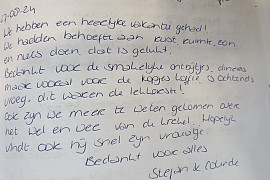 17-08-24
We hebben een heerlijke vakantie gehad!
We hadden behoefte aan rust, ruimte, een
en niks doen, dat is gelukt.
Bedankt voor de smakelijke ontbijtjes, diners
maar vooral voor de kopjes koffie 's ochtends
vroeg, dit waren de lekkerste!
Ook zijn we meer te weten gekomen over
het wel en wee van de krekel. Hopelijk
vindt ook hij snel zijn vrouwtje
Bedankt voor alles
Stefan &